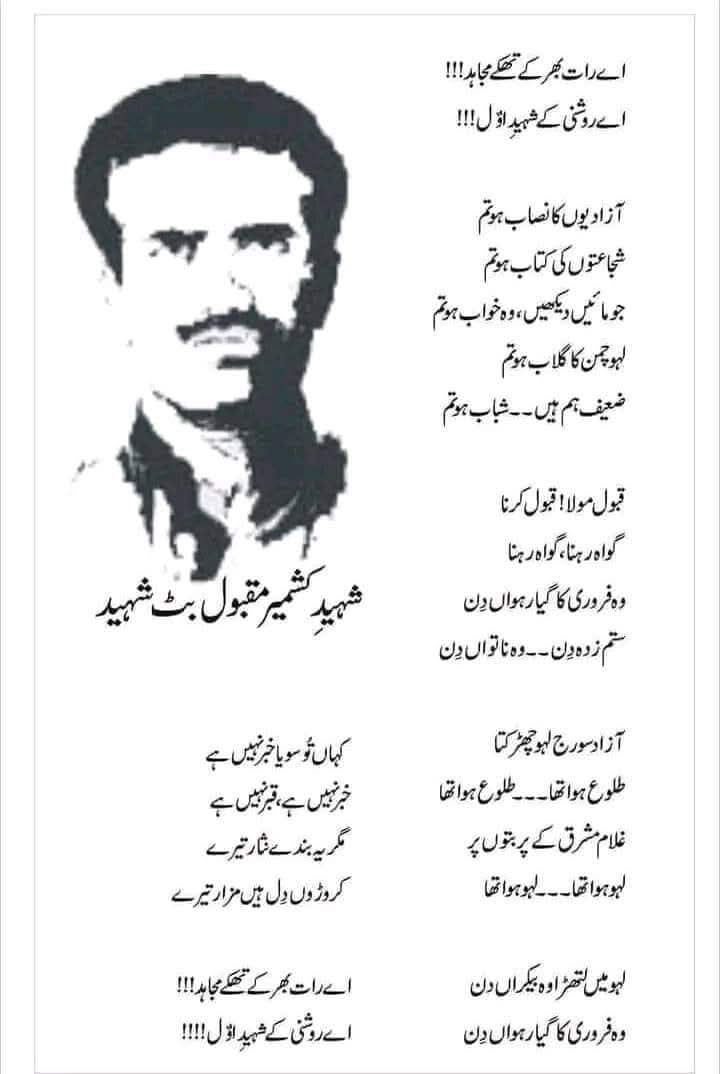 اے رات بھر کے تھکے مجاہد!!!
اے روشنی کے شہیدِ اوّل!!!
آزادیوں کا نصاب ہو تم
شجاعتوں کی کتاب ہو تم
جو مائیں دیکھیں، وہ خواب ہو تم
لہو چمن کا گلاب ہو تم
ضعیف ہم ہیں۔۔شباب ہو تم
قبول مولا! قبول کرنا
گواہ رہنا، گواہ رہنا
وہ فروری کا گیارھواں دِن
ستم زدہ دِن۔۔وہ ناتواں دِن
آزاد سورج لہو چھڑکتا
طلوع ہوا تھا۔۔۔طلوع ہوا تھا
غلام مشرق کے پربتوں پر
لہو ہوا تھا۔۔۔لہو ہوا تھا
لہو میں لتھڑا وہ بیکراں دن
وہ فروری کا گیارھواں دِن
شہیدِ کشمیر مقبول بٹ شہید
کہاں تُو سویا خبر نہیں ہے
خبر نہیں ہے، قبر نہیں ہے
مگر یہ بندے نثار تیرے
کروڑوں دِل ہیں مزار تیرے
اے رات بھر کے تھکے مجاہد!!!
اے روشنی کے شہیدِ اوّل!!!!